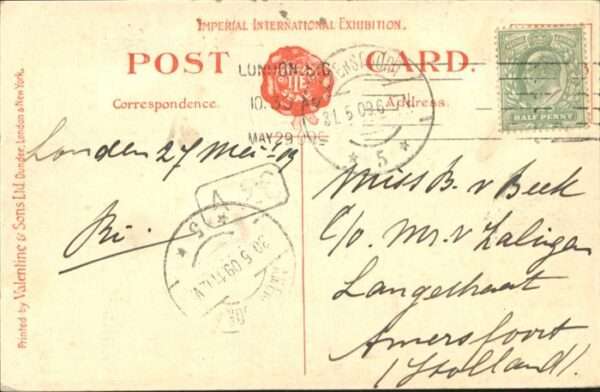 IMPERIAL INTERNATIONAL EXHIBITION.
POST CARD.
Correspondence.
Address.
LONDON. S.C
MAY 29 09
31. 5 09. 6
5
HALF PENNY
Londen 27 Mei '09
Ri.
Miss B. v Beek
c/o. Mr. v Zalingen
Langestraat
Amersfoort
(Holland).
5
30. 5 09. 11
Printed by Valentine & Sons Ltd. Dundee, London & New York.